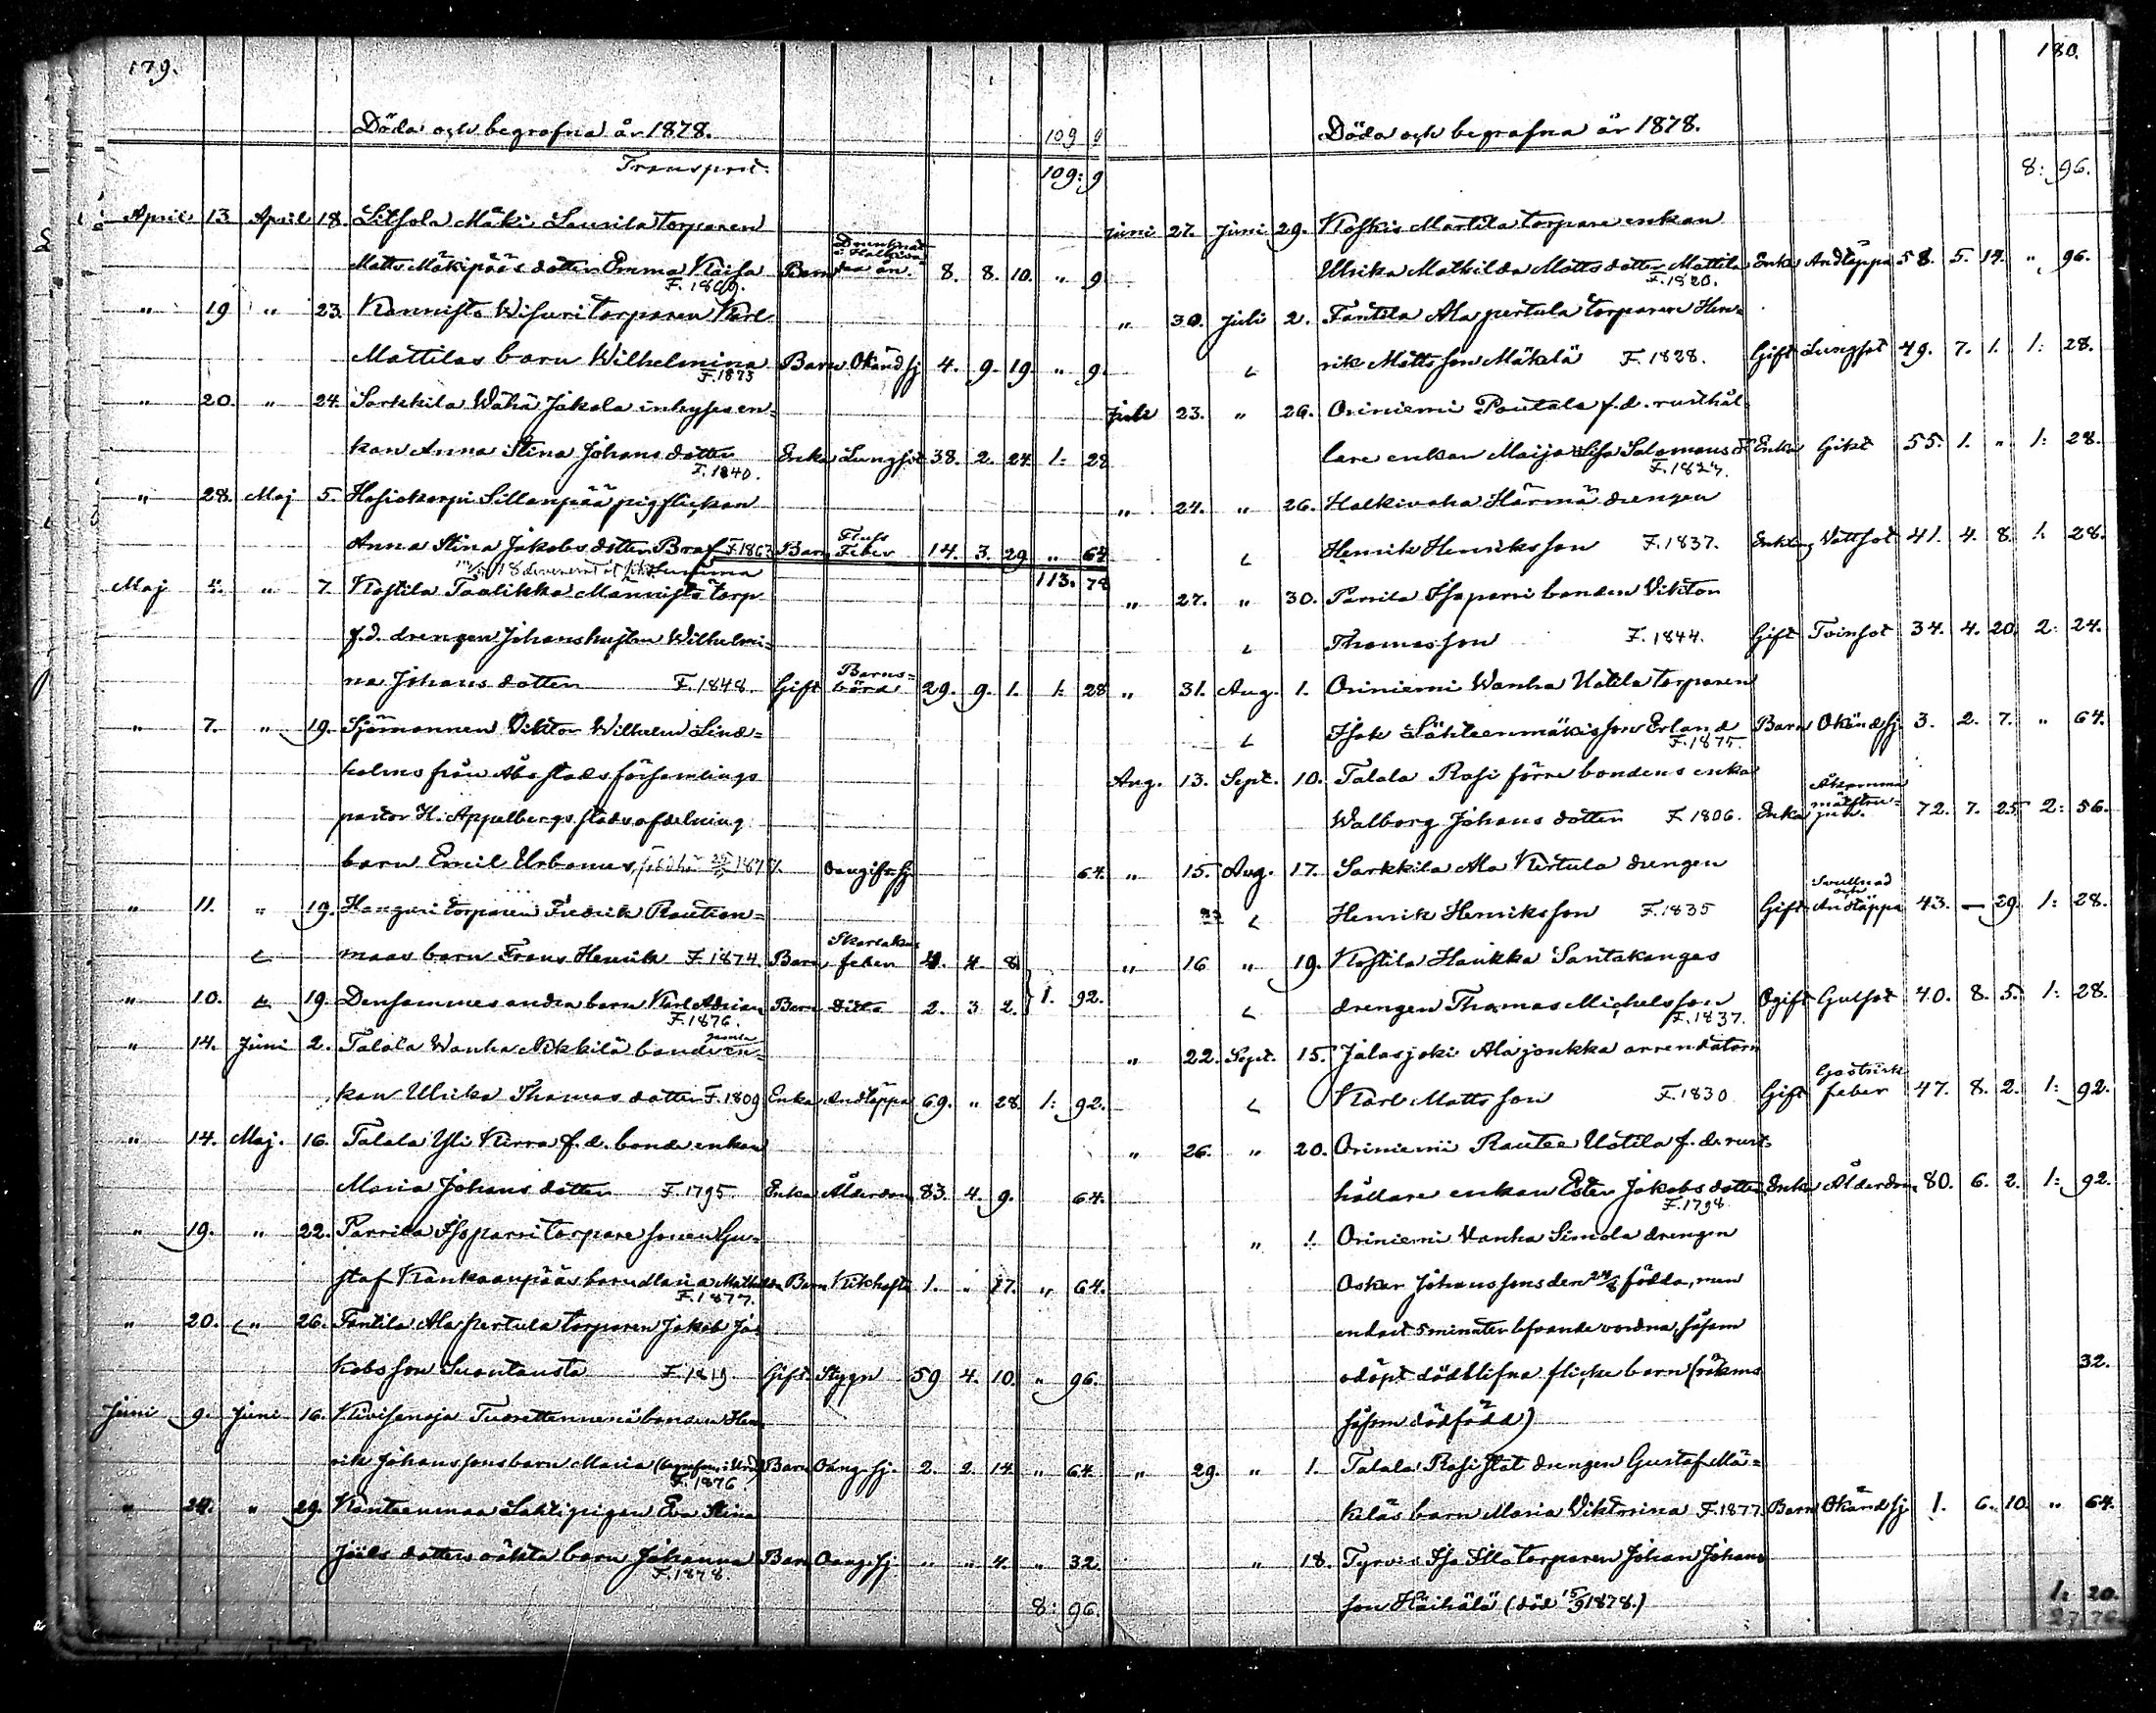 179.
Döda och begrafna år 1878. 109 9
Transport. 109: 9
April 13 April 18. Litsola Mäki Laurila torparen
Matts Mäkipääs dotter Emma Kaisa Barn Drunknat i Halkiva- ån. 8. 8. 10. " 9
F. 1869.
" 19 " 23. Kannisto Wisuri torparen Karl
Mattilas barn Wilhelmina Barn Okänd sj 4. 9. 19 " 9.
F. 1873
" 20. " 24. Sarkkila Wähä Jakola inhyses en-
kan Anna Stina Johans dotter Enka Lungsot 38. 2. 24. 1: 28
F. 1840.
" 28. Maj 5. Hosiokorpi Sillanpää pigflickan
Anna Stina Jakobs dotter Braf F. 1863 Barn Feber 14. 3. 29 " 64
Summa 113. 78
Maj 5. " 7. Kostila Taalikka Mannisto torp
f.d. drengen Johans hustru Wilhelmi-
na Johans dotter F. 1848. Gift Barns- börd 29. 9. 1. 1: 28
" 7. " 19. Sjömannen Viktor Wilhelm Lind-
holms från Åbo stads församlings
pastor H. Appelbergs stads afdelning
barn Emil Urbanus, född 1877. Oangifv sj 64.
" 11. " 19. Hanguri torparen Fredrik Raution-
maas barn Frans Henrik F. 1874. Barn Skarlakans feber 4. 4 8.
" 10. " 19. Densammes andra barn Karl Adrian Barn ditto 2. 3 2. 1. 92.
F. 1876.
" 14. Juni 2. Talala Wanha Nikkilä gamla bonde en-
kan Ulrika Thomas dotter F. 1809 Enka Andtäppa 69. " 28. 1: 92.
" 14. Maj. 16. Talala Yli Kirra f.d. bonde enkan
Maria Johans dotter F. 1795. Enka Ålderdom 83. 4. 9. 64.
" 19. " 22. Parrila Isoparri torpare sonen Gu-
staf Kankaanpääs barn Maria Mathilda Barn Kikhosta 1. " 17. " 64.
F. 1877.
" 20. " 26. Tantila Ala pertula torparen Jakob Ja-
kobs son Suontausta F. 1819. Gift Stygn 59 4. 10. " 96.
Juni 9. Juni 16. Kivisenoja Tuorettenmenä bonden Hen-
rik Johans sons barn Maria (begrafven i Urdi) Barn Oang. sj. 2. 2. 14. " 64.
F. 1876.
" 24. " 29. Kanteenmaa Lahti pigan Eva Stina
Joels dotters oäkta barn Johanna Barn Oang. sj. " " 4. " 32.
F. 1878.
8: 96.
180.
Döda och begrafna år 1878.
8: 96.
Juni 27. Juni 29. Koskis Martila torpare enkan
Ulrika Mathilda Matts dotter Mattila Enka Andtäppa 58. 5. 14. " 96.
F. 1820.
" 30. Juli 2. Tantila Ala pertula torparen Hen-
rik Mattsson Mäkelä F. 1828. Gift Lungsot 49. 7. 1. 1: 28.
Juli 23. " 26. Oriniemi Poutala f.d. rusthål-
lare enkan Maija Lisa Salomons d. Enka Gikt 55. 1. " 1: 28.
" 24. " 26. Halkivaha Härmä drengen
Henrik Henriksson F. 1837. Enkling Vattsot 41. 4. 8. 1. 28.
" 27. " 30. Parrila Isoparri bonden Viktor
Thomasson F. 1844. Gift Tvinsot 34. 4. 20. 2: 24.
" 31. Aug. 1. Oriniemi Wanha Uotila torparen
Isak Lähteenmäkis son Erland Barn Okänd sj 3. 2. 7. " 64.
F. 1875.
Aug. 13. Sept. 10. Talala Rasi förre bondens enka
Walborg Johans dotter F. 1806. Enka 72. 7. 25. 2: 56.
" 15. Aug. 17. Sarkkila Ala Kertula drengen
Henrik Henriksson F. 1835 Gift Svullnad och Andtäppa 43. — 29. 1: 28.
" 16 " 19. Kostila Haukka Santakangas
drengen Thomas Michelsson Ogift Gulsot 40. 8. 5. 1: 28.
F. 1837.
" 22. Sept. 15. Jalasjoki Alajoukka arrendatorn
Karl Mattsson F. 1830 Gift Gastrisk feber 47. 8. 2. 1: 92.
" 26. " 20. Oriniemi Rautee Uotila f.d. rust-
hållare enkan Ester Jakobs dotter Enka Ålderdom 80. 6. 2. 1: 92.
F. 1798.
" 1. Oriniemi Vanha Simola drengen
Oskar Johanssons den 24/8 födda, men
endast 5 minuter lefvande vordna, såsom
odöpt dödblifna flicke barn (räknas 32.
såsom dödfödd)
" 29. " 1. Talala Rasi Stat drengen Gustaf Mä-
keläs barn Maria Viktorina F. 1877. Barn Okänd sj 1. 6. 10. " 64.
" 18. Tyrvis Iso Illo torparen Johan Johans
son Häihälä (död 15/9 1878.) 1: 20.
27.76